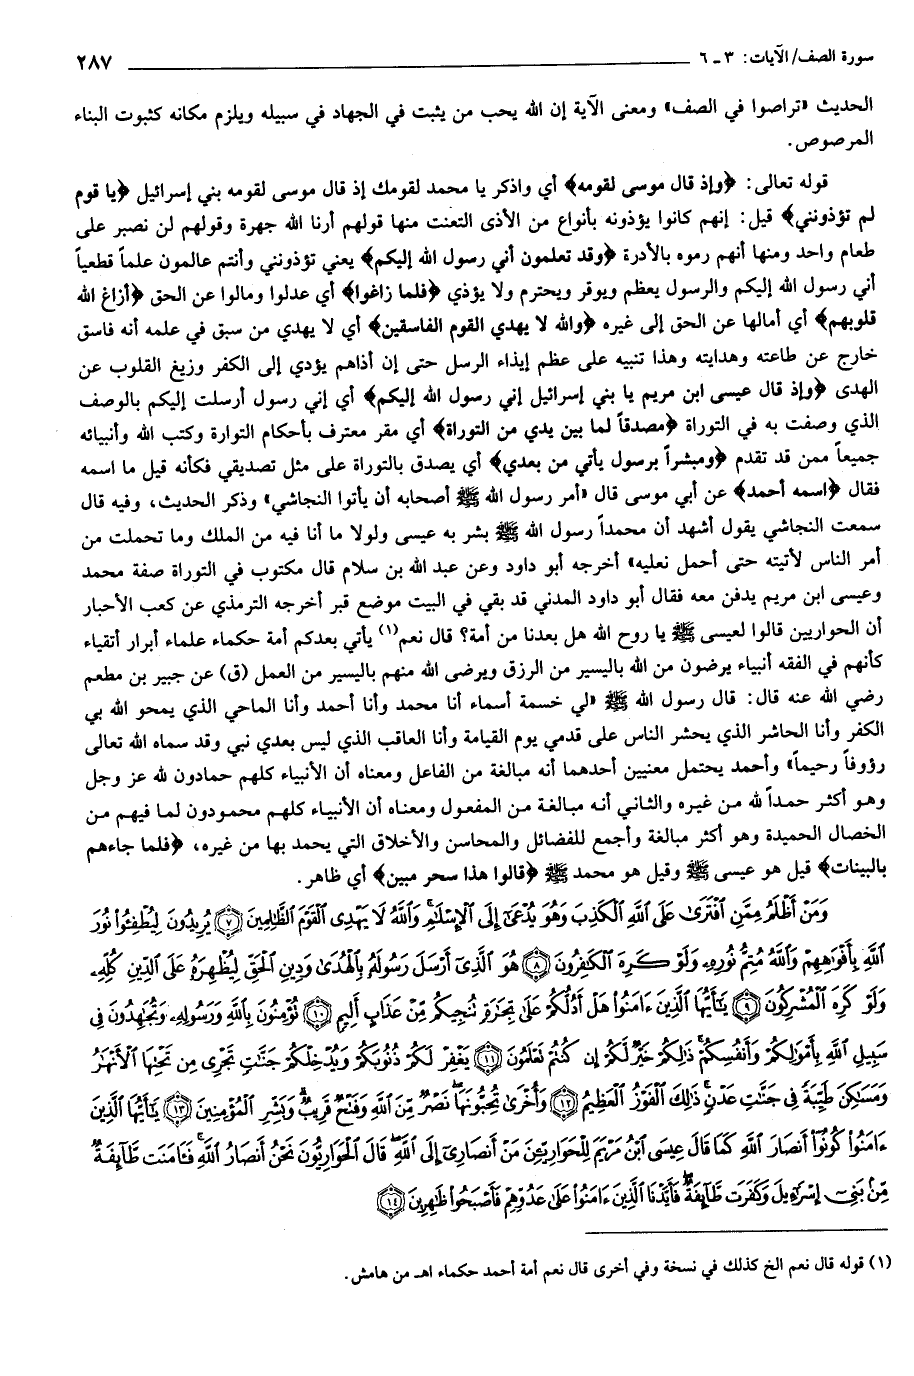 سورة الصف/الآيات: ٣ ـ ٦ ٢٨٧
الحديث «تراصوا في الصف» ومعنى الآية إن الله يحب من يثبت في الجهاد في سبيله ويلزم مكانه كثبوت البناء
المرصوص.
قوله تعالى: ﴿وإذ قال موسى لقومه﴾ أي واذكر يا محمد لقومك إذ قال موسى لقومه بني إسرائيل ﴿يا قوم
لم تؤذونني﴾ قيل: إنهم كانوا يؤذونه بأنواع من الأذى التعنت منها قولهم أرنا الله جهرة وقولهم لن نصبر على
طعام واحد ومنها أنهم رموه بالأدرة ﴿وقد تعلمون أني رسول الله إليكم﴾ يعني تؤذونني وأنتم عالمون علماً قطعياً
أني رسول الله إليكم والرسول يعظم ويوقر ويحترم ولا يؤذي ﴿فلما زاغوا﴾ أي عدلوا ومالوا عن الحق ﴿أزاغ الله
قلوبهم﴾ أي أمالها عن الحق إلى غيره ﴿والله لا يهدي القوم الفاسقين﴾ أي لا يهدي من سبق في علمه أنه فاسق
خارج عن طاعته وهدايته وهذا تنبيه على عظم إيذاء الرسل حتى إن أذاهم يؤدي إلى الكفر وزيغ القلوب عن
الهدى ﴿وإذ قال عيسى ابن مريم يا بني إسرائيل إني رسول الله إليكم﴾ أي إني رسول أرسلت إليكم بالوصف
الذي وصفت به في التوراة ﴿مصدقاً لما بين يدي من التوراة﴾ أي مقر معترف بأحكام التوارة وكتب الله وأنبيائه
جميعاً ممن قد تقدم ﴿ومبشراً برسول يأتي من بعدي﴾ أي يصدق بالتوراة على مثل تصديقي فكأنه قيل ما اسمه
فقال ﴿اسمه أحمد﴾ عن أبي موسى قال «أمر رسول الله ﷺ أصحابه أن يأتوا النجاشي» وذكر الحديث، وفيه قال
سمعت النجاشي يقول أشهد أن محمداً رسول الله ﷺ بشر به عيسى ولولا ما أنا فيه من الملك وما تحملت من
أمر الناس لأتيته حتى أحمل نعليه» أخرجه أبو داود وعن عبد الله بن سلام قال مكتوب في التوراة صفة محمد
وعيسى ابن مريم يدفن معه فقال أبو داود المدني قد بقي في البيت موضع قبر أخرجه الترمذي عن كعب الأحبار
أن الحواريين قالوا لعيسى ﷺ يا روح الله هل بعدنا من أمة؟ قال نعم(١) يأتي بعدكم أمة حكماء علماء أبرار أتقياء
كأنهم في الفقه أنبياء يرضون من الله باليسير من الرزق ويرضى الله منهم باليسير من العمل (ق) عن جبير بن مطعم
رضي الله عنه قال: قال رسول الله ﷺ «لي خسمة أسماء أنا محمد وأنا أحمد وأنا الماحي الذي يمحو الله بي
الكفر وأنا الحاشر الذي يحشر الناس على قدمي يوم القيامة وأنا العاقب الذي ليس بعدي نبي وقد سماه الله تعالى
رؤوفاً رحيماً» وأحمد يحتمل معنيين أحدهما أنه مبالغة من الفاعل ومعناه أن الأنبياء كلهم حمادون لله عز وجل
وهو أكثر حمداً لله من غيره والثاني أنه مبالغة من المفعول ومعناه أن الأنبياء كلهم محمودون لما فيهم من
الخصال الحميدة وهو أكثر مبالغة وأجمع للفضائل والمحاسن والأخلاق التي يحمد بها من غيره، ﴿فلما جاءهم
بالبينات﴾ قيل هو عيسى ﷺ وقيل هو محمد ﷺ ﴿قالوا هذا سحر مبين﴾ أي ظاهر.
وَمَنْ أَظْلَمُ مِمَّنِ ٱفْتَرَىٰ عَلَى ٱللَّهِ ٱلْكَذِبَ وَهُوَ يُدْعَىٰٓ إِلَى ٱلْإِسْلَٰمِ ۚ وَٱللَّهُ لَا يَهْدِى ٱلْقَوْمَ ٱلظَّٰلِمِينَ ﴿٧﴾ يُرِيدُونَ لِيُطْفِـُٔوا۟ نُورَ
ٱللَّهِ بِأَفْوَٰهِهِمْ وَٱللَّهُ مُتِمُّ نُورِهِۦ وَلَوْ كَرِهَ ٱلْكَٰفِرُونَ ﴿٨﴾ هُوَ ٱلَّذِىٓ أَرْسَلَ رَسُولَهُۥ بِٱلْهُدَىٰ وَدِينِ ٱلْحَقِّ لِيُظْهِرَهُۥ عَلَى ٱلدِّينِ كُلِّهِۦ
وَلَوْ كَرِهَ ٱلْمُشْرِكُونَ ﴿٩﴾ يَٰٓأَيُّهَا ٱلَّذِينَ ءَامَنُوا۟ هَلْ أَدُلُّكُمْ عَلَىٰ تِجَٰرَةٍ تُنجِيكُم مِّنْ عَذَابٍ أَلِيمٍ ﴿١٠﴾ تُؤْمِنُونَ بِٱللَّهِ وَرَسُولِهِۦ وَتُجَٰهِدُونَ فِى
سَبِيلِ ٱللَّهِ بِأَمْوَٰلِكُمْ وَأَنفُسِكُمْ ۚ ذَٰلِكُمْ خَيْرٌ لَّكُمْ إِن كُنتُمْ تَعْلَمُونَ ﴿١١﴾ يَغْفِرْ لَكُمْ ذُنُوبَكُمْ وَيُدْخِلْكُمْ جَنَّٰتٍ تَجْرِى مِن تَحْتِهَا ٱلْأَنْهَٰرُ
وَمَسَٰكِنَ طَيِّبَةً فِى جَنَّٰتِ عَدْنٍ ۚ ذَٰلِكَ ٱلْفَوْزُ ٱلْعَظِيمُ ﴿١٢﴾ وَأُخْرَىٰ تُحِبُّونَهَا ۖ نَصْرٌ مِّنَ ٱللَّهِ وَفَتْحٌ قَرِيبٌ ۗ وَبَشِّرِ ٱلْمُؤْمِنِينَ ﴿١٣﴾ يَٰٓأَيُّهَا ٱلَّذِينَ
ءَامَنُوا۟ كُونُوٓا۟ أَنصَارَ ٱللَّهِ كَمَا قَالَ عِيسَى ٱبْنُ مَرْيَمَ لِلْحَوَارِيِّـۧنَ مَنْ أَنصَارِىٓ إِلَى ٱللَّهِ ۖ قَالَ ٱلْحَوَارِيُّونَ نَحْنُ أَنصَارُ ٱللَّهِ ۖ فَـَٔامَنَت طَّآئِفَةٌ
مِّنۢ بَنِىٓ إِسْرَٰٓءِيلَ وَكَفَرَت طَّآئِفَةٌ ۖ فَأَيَّدْنَا ٱلَّذِينَ ءَامَنُوا۟ عَلَىٰ عَدُوِّهِمْ فَأَصْبَحُوا۟ ظَٰهِرِينَ ﴿١٤﴾
(١) قوله قال نعم الخ كذلك في نسخة وفي أخرى قال نعم أمة أحمد حكماء اهـ من هامش.